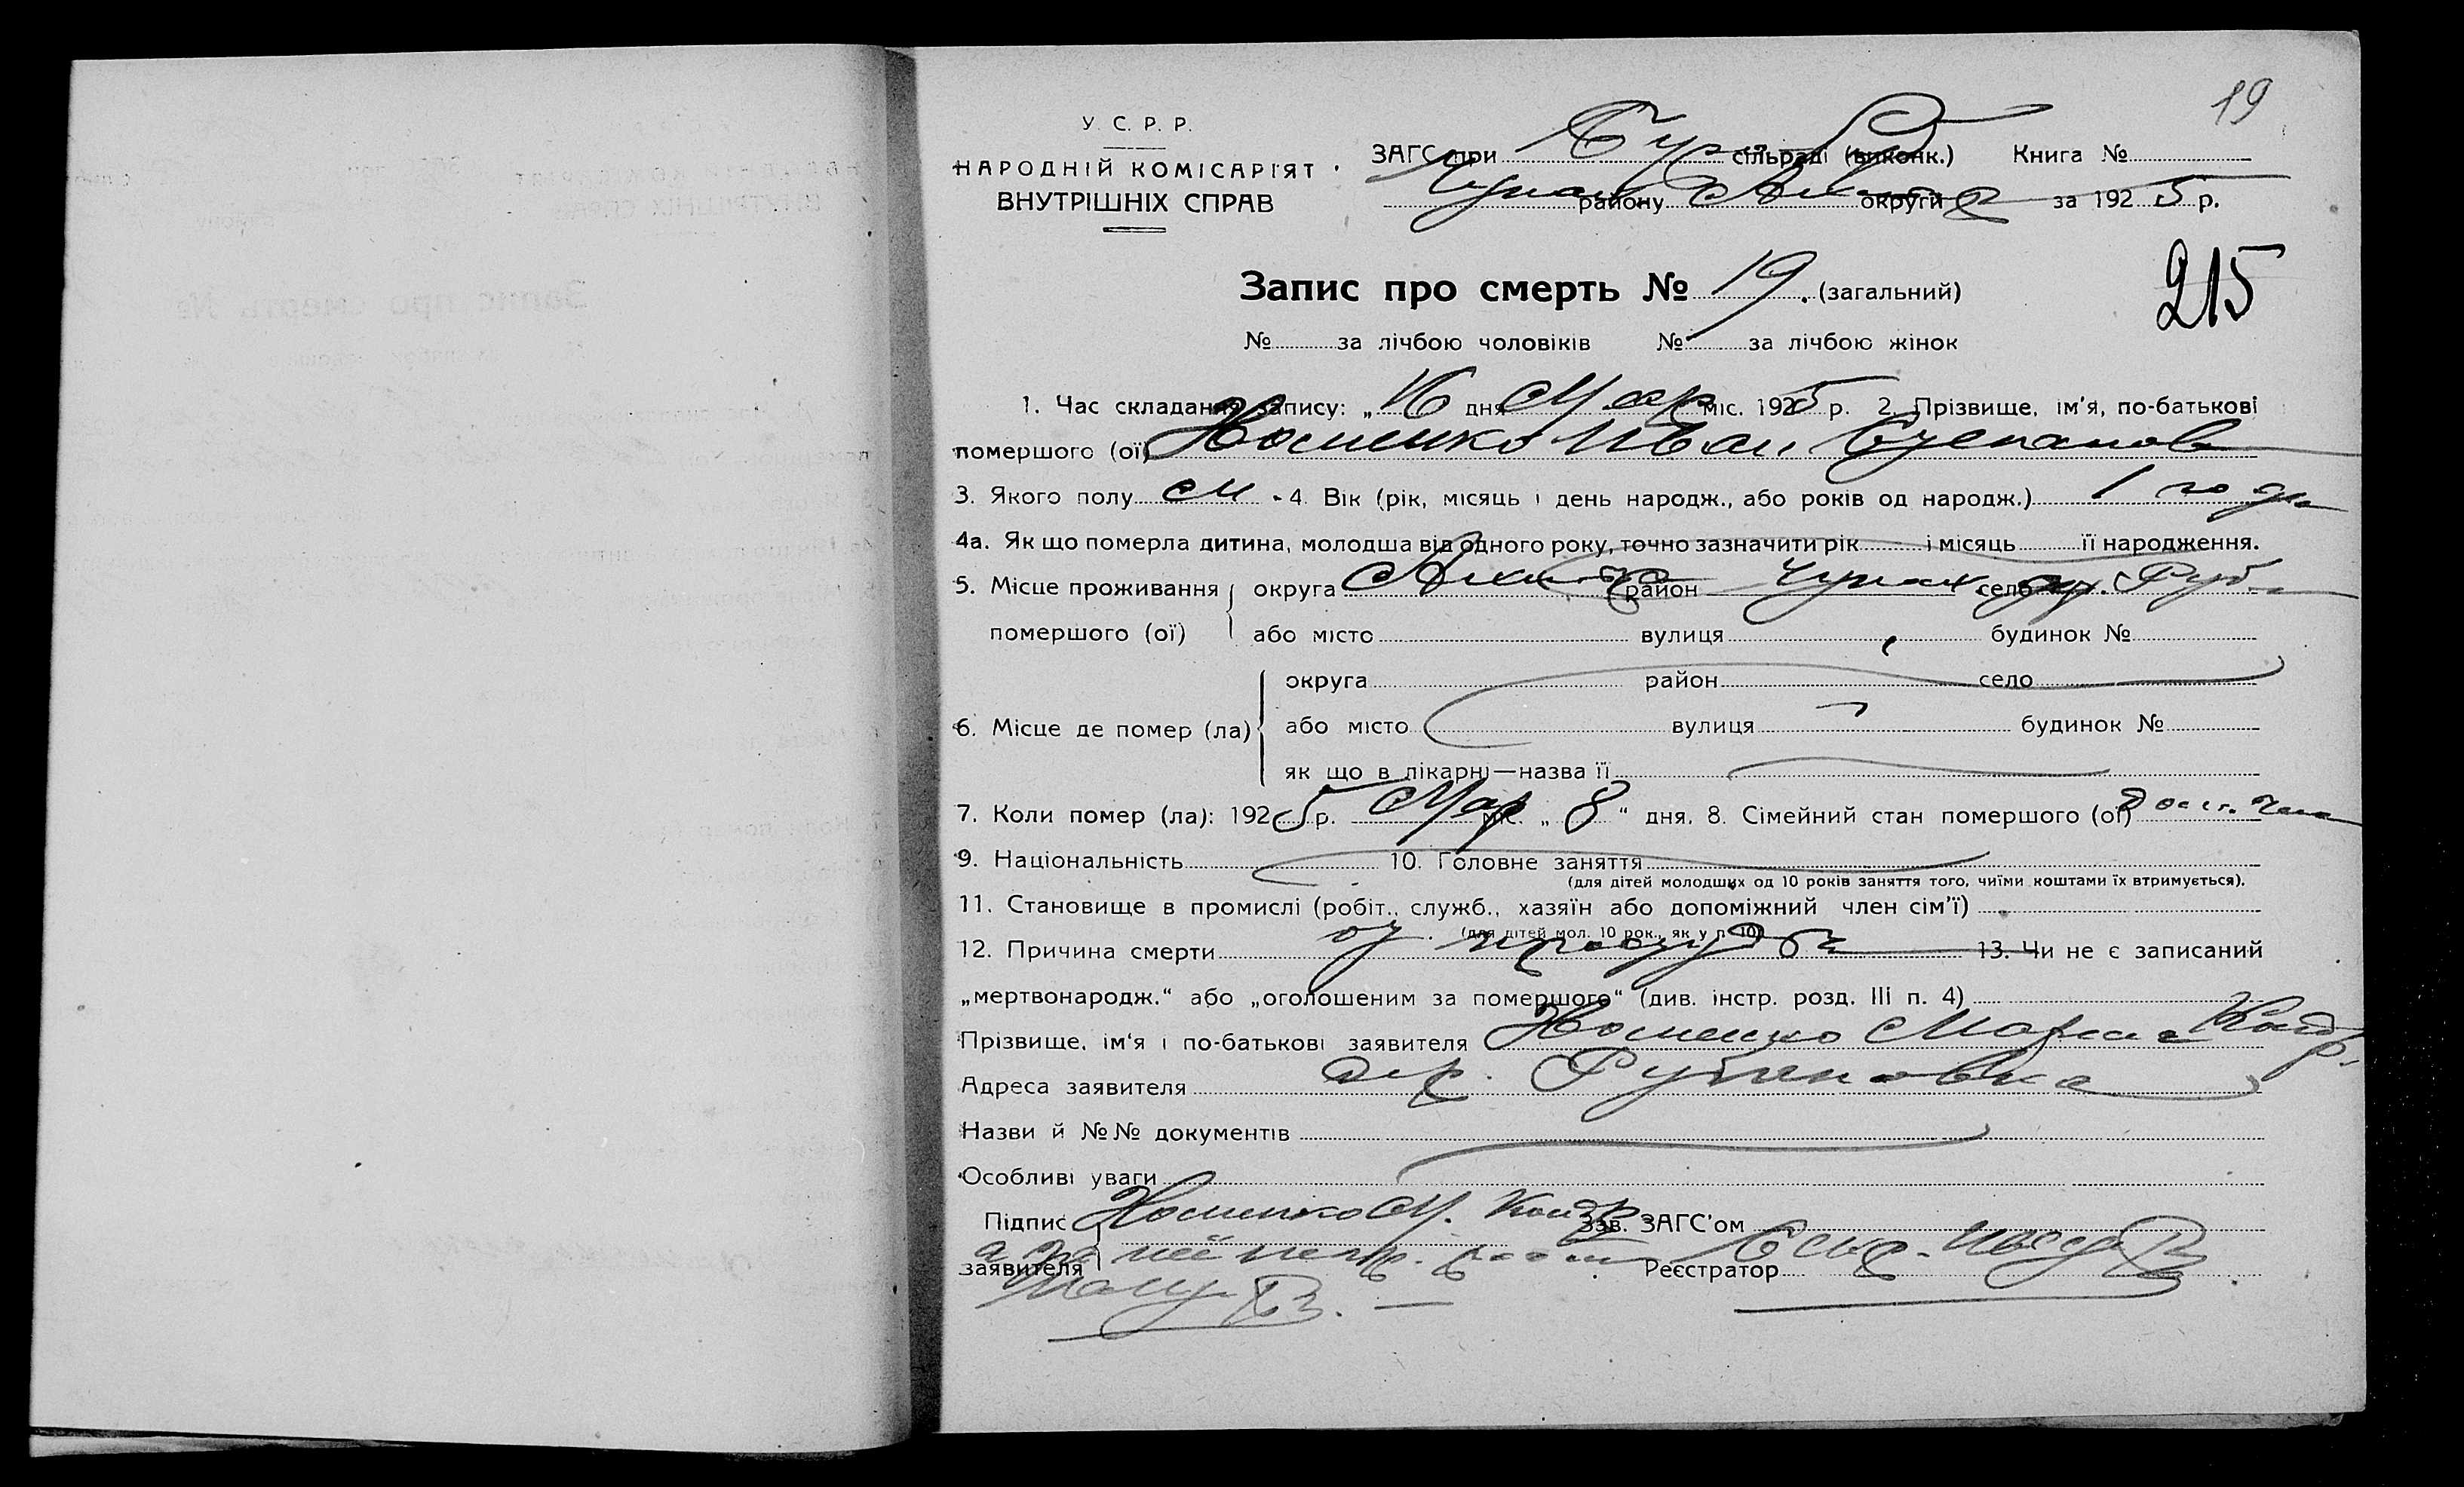 19
У. С. Р. Р.
НАРОДНІЙ КОМІСАРІЯТ
ВНУТРІШНІХ СПРАВ
ЗАГС при сільраді (виконк.) Книга №
району округи за 1925 р.
215
Запис про смерть № 19. (загальний)
№ за лічбою чоловіків № за лічбою жінок
1. Час складання запису: „16 дня Мар міс. 1925 р. 2. Прізвище, ім'я, по-батькові
помершого (ої) Хоменко Иван Степанов
3. Якого полу м - 4. Вік (рік, місяць і день народж., або років од народж.) 1 года
4а. Як що померла дитина, молодша від одного року, точно зазначити рік і місяць її народження.
5. Місце проживання округа район село
помершого (ої) або місто вулиця будинок №
округа район село
6. Місце де помер (ла) або місто вулиця будинок №
як що в лікарні—назва її
7. Коли помер (ла): 1925 р. Мар міс. „ 8 “ дня. 8. Сімейний стан помершого (ої)
9. Національність 10. Головне заняття
(для дітей молодших од 10 років заняття того, чиїми коштами їх втримується).
11. Становище в промислі (робіт., служб., хазяїн або допоміжний член сім'ї)
(для дітей мол. 10 рок., як у п. 10)
12. Причина смерти от простуды 13. Чи не є записаний
„мертвонародж.“ або „оголошеним за помершого“ (див. інстр. розд. III п. 4)
Прізвище, ім'я і по-батькові заявителя Хоменко Мария Кондр.
Адреса заявителя дер. Рубановка
Назви й №№ документів
Особливі уваги
Підпис Хоменко М. Кондр Зав. ЗАГС'ом
заявителя Реєстратор